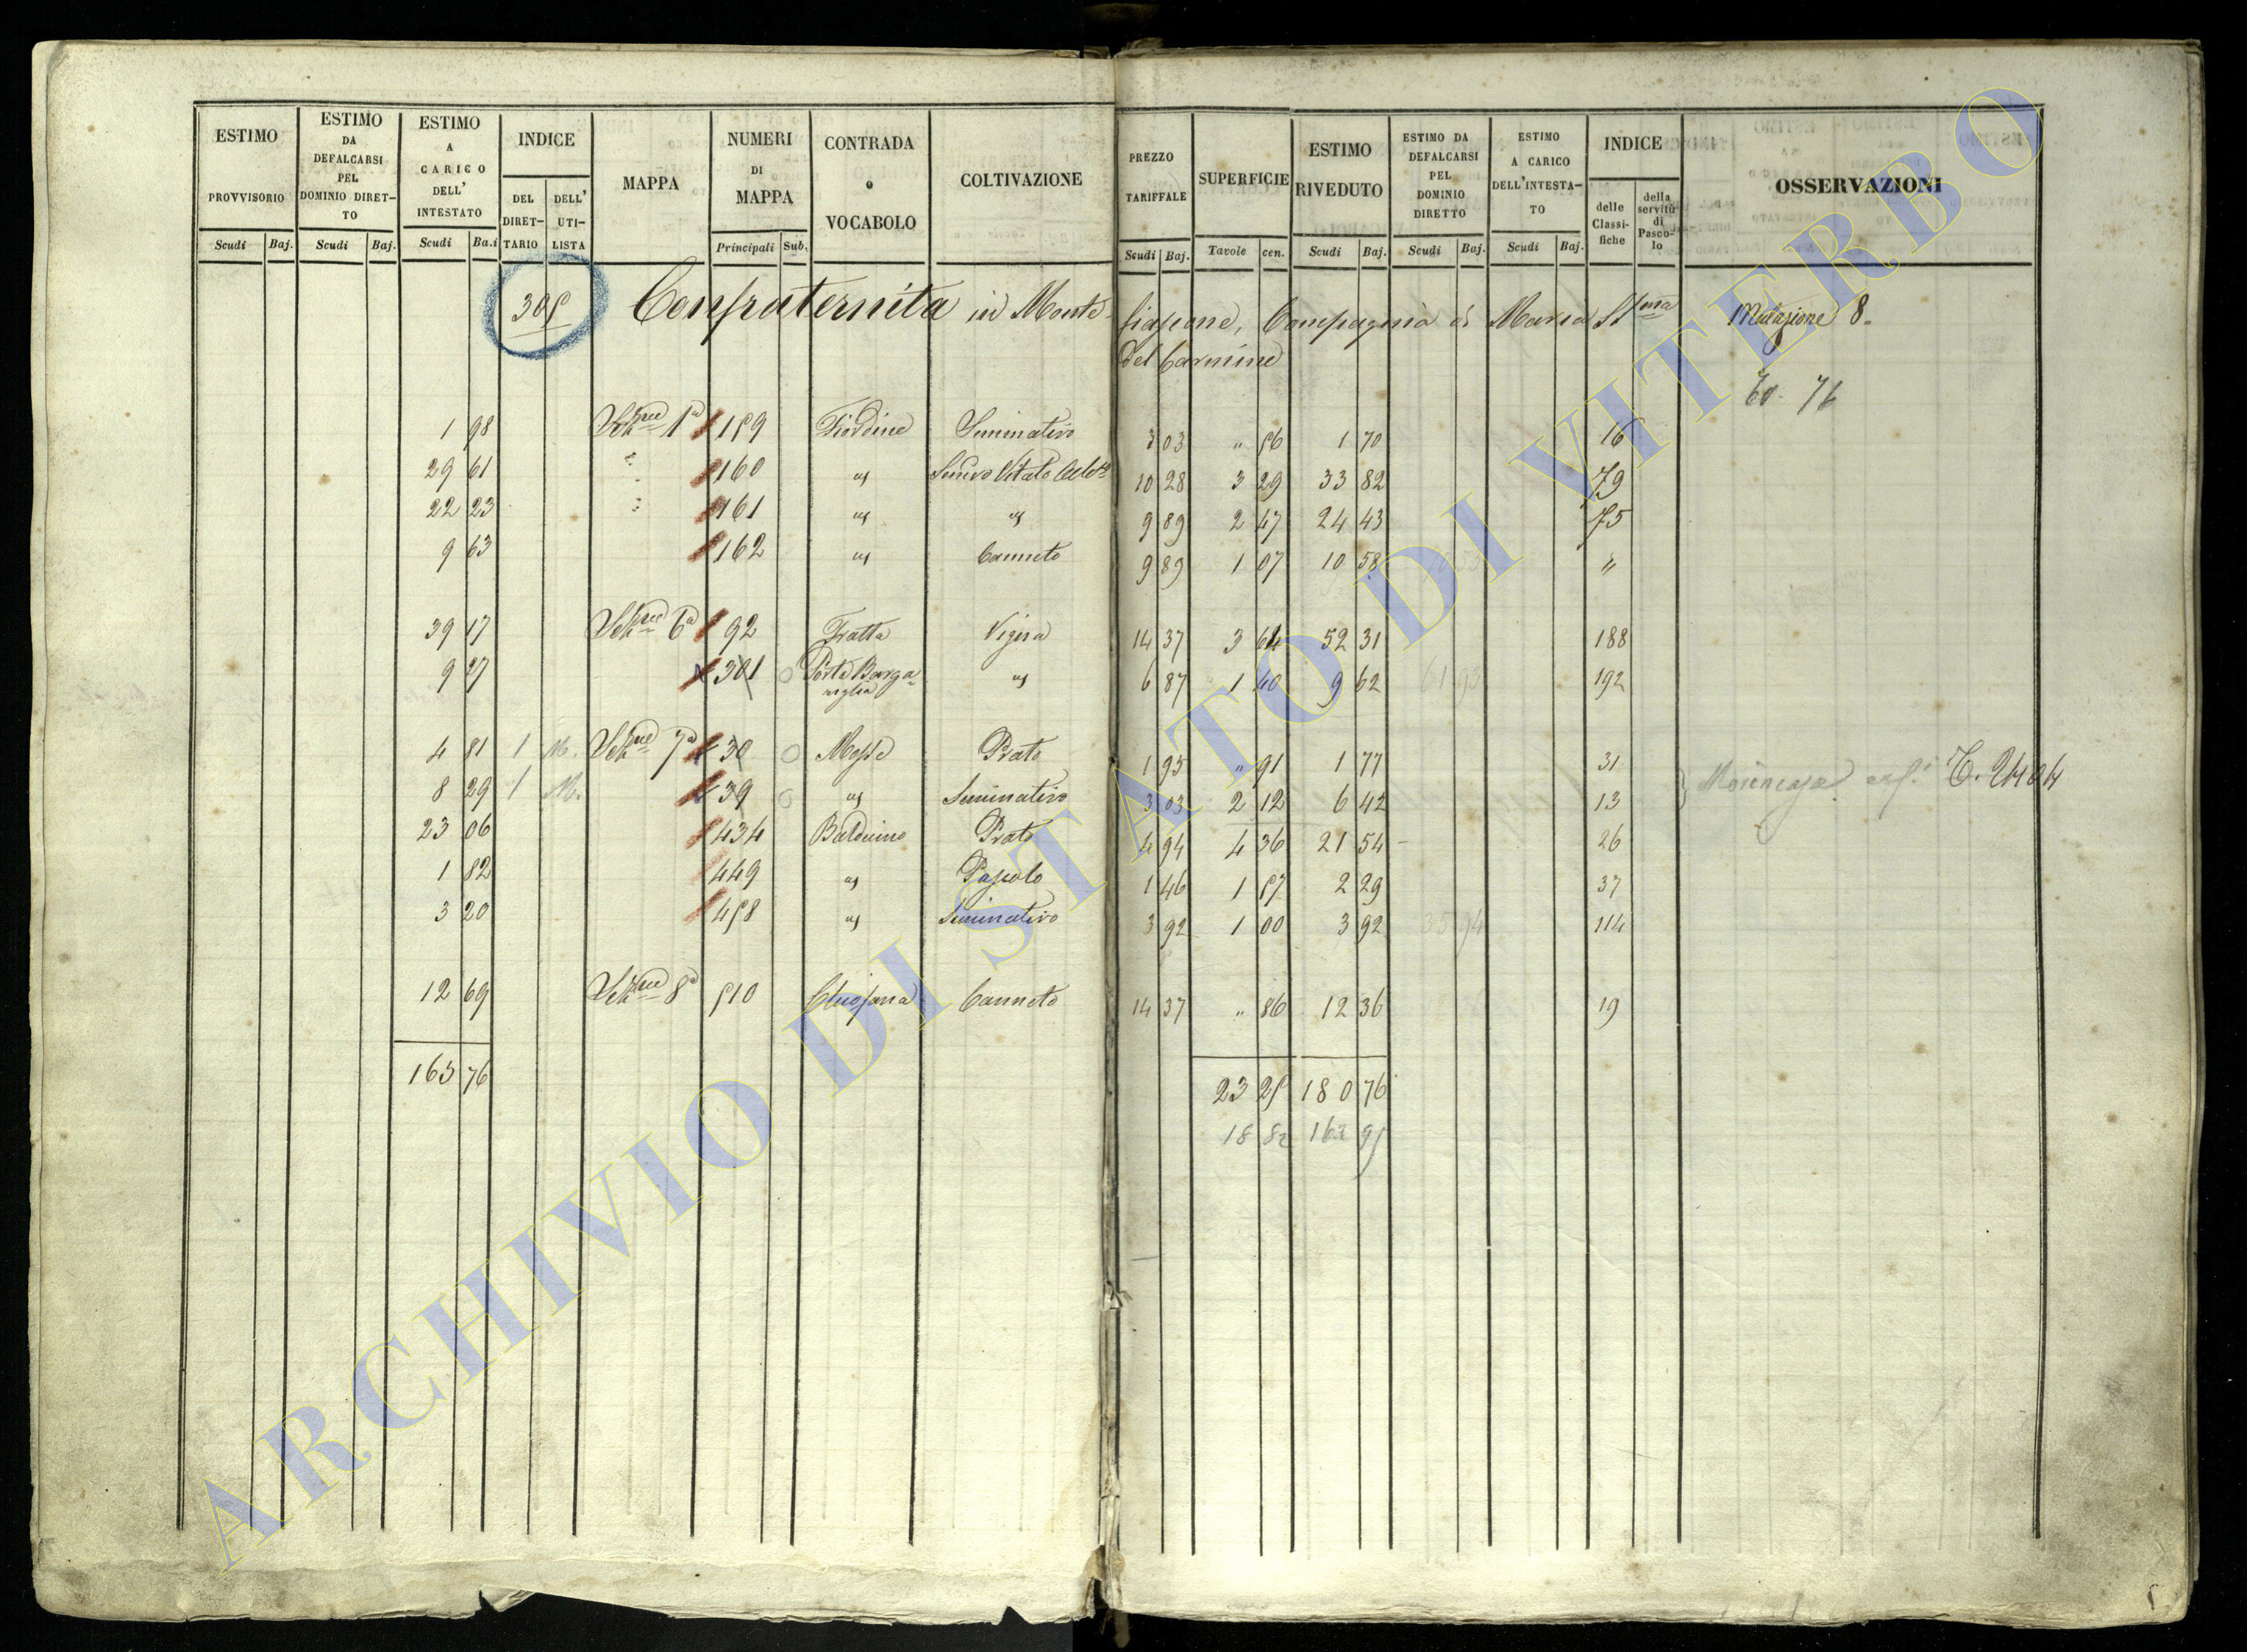 ESTIMO PROVVISORIO Scudi Baj.
ESTIMO DA DEFALCARSI PEL DOMINIO DIRETTO Scudi Baj.
ESTIMO A CARICO DELL' INTESTATO Scudi Ba.i
INDICE DEL DIRETTARIO DELL' UTILISTA
MAPPA
NUMERI DI MAPPA Principali Sub.
CONTRADA o VOCABOLO
COLTIVAZIONE
PREZZO TARIFFALE Scudi Baj.
SUPERFICIE Tavole cen.
ESTIMO RIVEDUTO Scudi Baj.
ESTIMO DA DEFALCARSI PEL DOMINIO DIRETTO Scudi Baj.
ESTIMO A CARICO DELL'INTESTATO Scudi Baj.
INDICE delle Classifiche della servitù di Pascolo
OSSERVAZIONI
305 Confraternita in Montefiascone, Compagnia di Maria SSma Mutazione 8.
del Carmine
76
1 98 Sezne 1a 159 Fiordine Seminativo 3 03 " 56 1 70 16
29 61 " 160 " 10 28 3 29 33 82 79
22 23 " 161 " " 9 89 2 47 24 43 75
9 63 162 " Canneto 9 89 1 07 10 58 "
39 17 Sezne 6a 92 Fratta Vigna 14 37 3 64 52 31 188
9 27 301 " 6 87 1 40 9 62 61 93 192
4 81 1 M. Sezne 7a 30 Mosse Prato 1 95 " 91 1 77 31
8 29 1 M. 39 " Seminativo 3 03 2 12 6 42 13
23 06 434 Balduino Prato 4 94 4 36 21 54 26
1 82 449 " Pascolo 1 46 1 57 2 29 37
3 20 458 " Seminativo 3 92 1 00 3 92 35 94 114
12 69 Sezne 8a 510 Canneto 14 37 " 86 12 36 19
163 76 23 25 180 76
18 82 162 95
ARCHIVIO DI STATO DI VITERBO